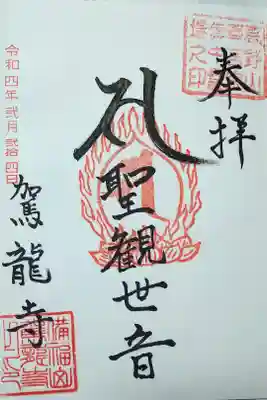 奉拝
聖観世音
駕龍寺
令和四年弐月弐拾四日